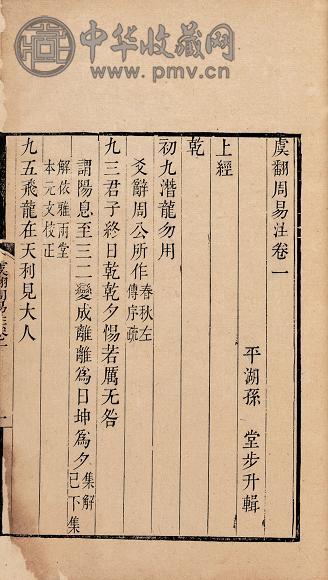 中华收藏网
www.pmv.cn
虞翻周易注卷一
平湖孫 堂步升輯
上經
乾
初九潛龍勿用
爻辭周公所作春秋左傳序疏
九三君子終日乾乾夕惕若厲无咎
謂陽息至三二變成離離為日坤為夕集解已下集
解依雅雨堂本元文校正
九五飛龍在天利見大人